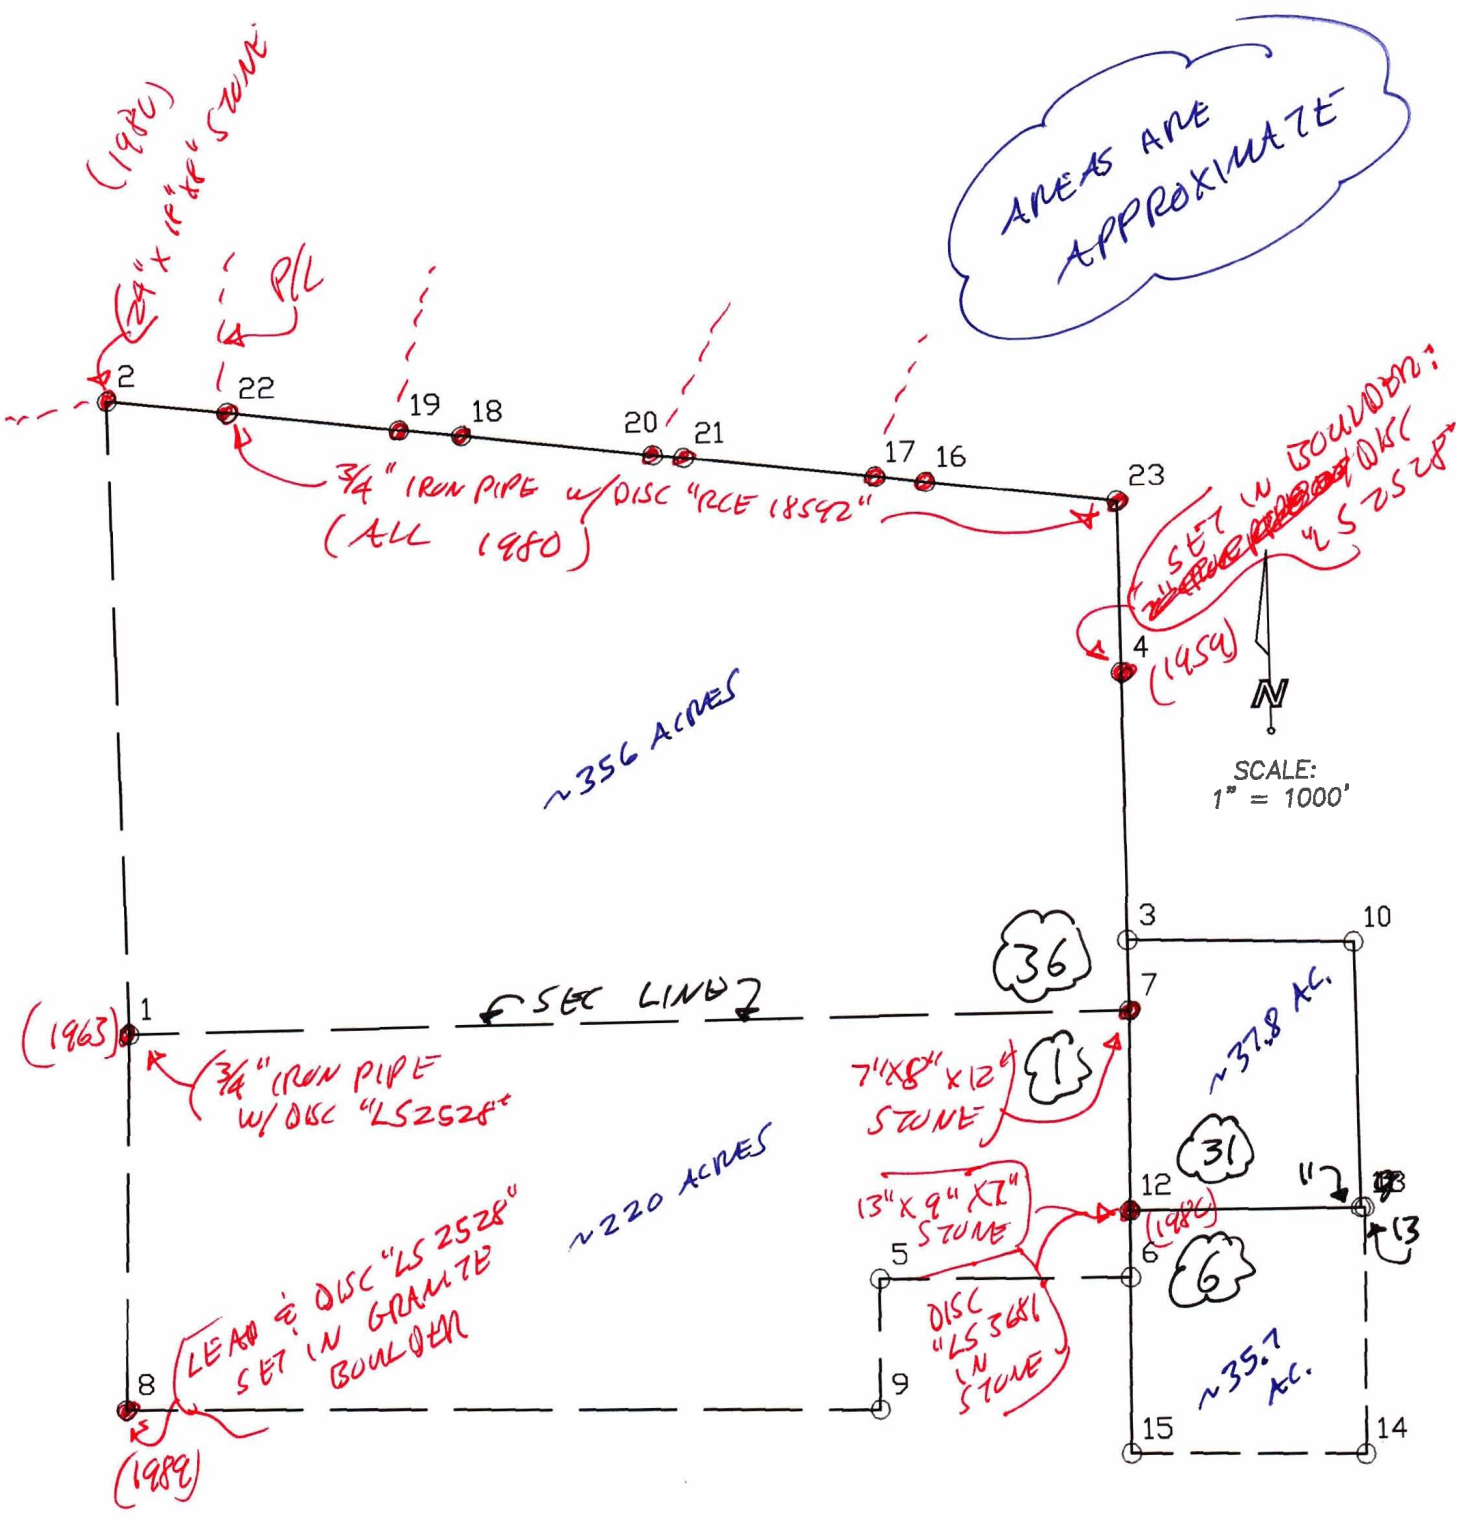 (1980)
(24" X 18" X8" STONE
AREAS ARE
APPROXIMATE
P/L
2
22
19
18
20
21
17
16
23
3/4" IRON PIPE w/DISC "RCE 18592"
(ALL 1980)
SET IN BOULDER:
DISC
"LS 2528"
4
(1959)
N
SCALE:
1" = 1000'
~356 ACRES
3
10
36
7
SEC LINE
1
(1963)
3/4" IRON PIPE
W/ DISC "LS2528"
7"X8" X12"
STONE
1
~37.8 AC.
31
11
12
(1980)
13" X 9" X7"
STONE
13
~220 ACRES
5
6
6
LEAD & DISC "LS 2528"
SET IN GRANITE
BOULDER
DISC
"LS 3681
IN
STONE
~35.7
AC.
8
9
15
14
(1989)